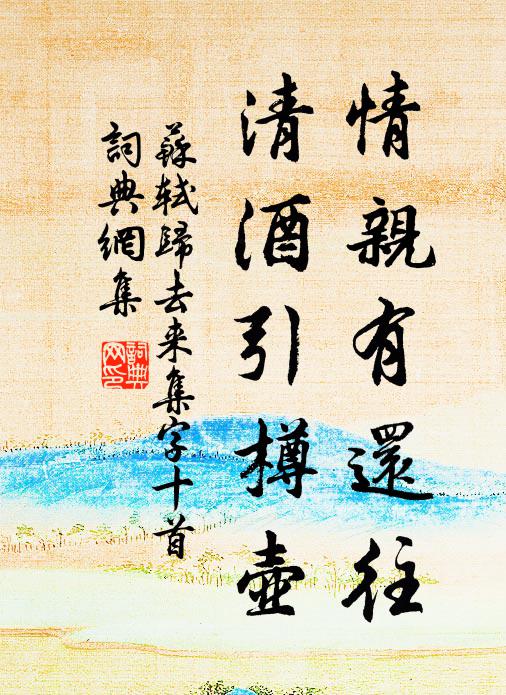 情親有還往
清酒引樽壺
蘇軾歸去来集字十首
詞典網集
詞典網印